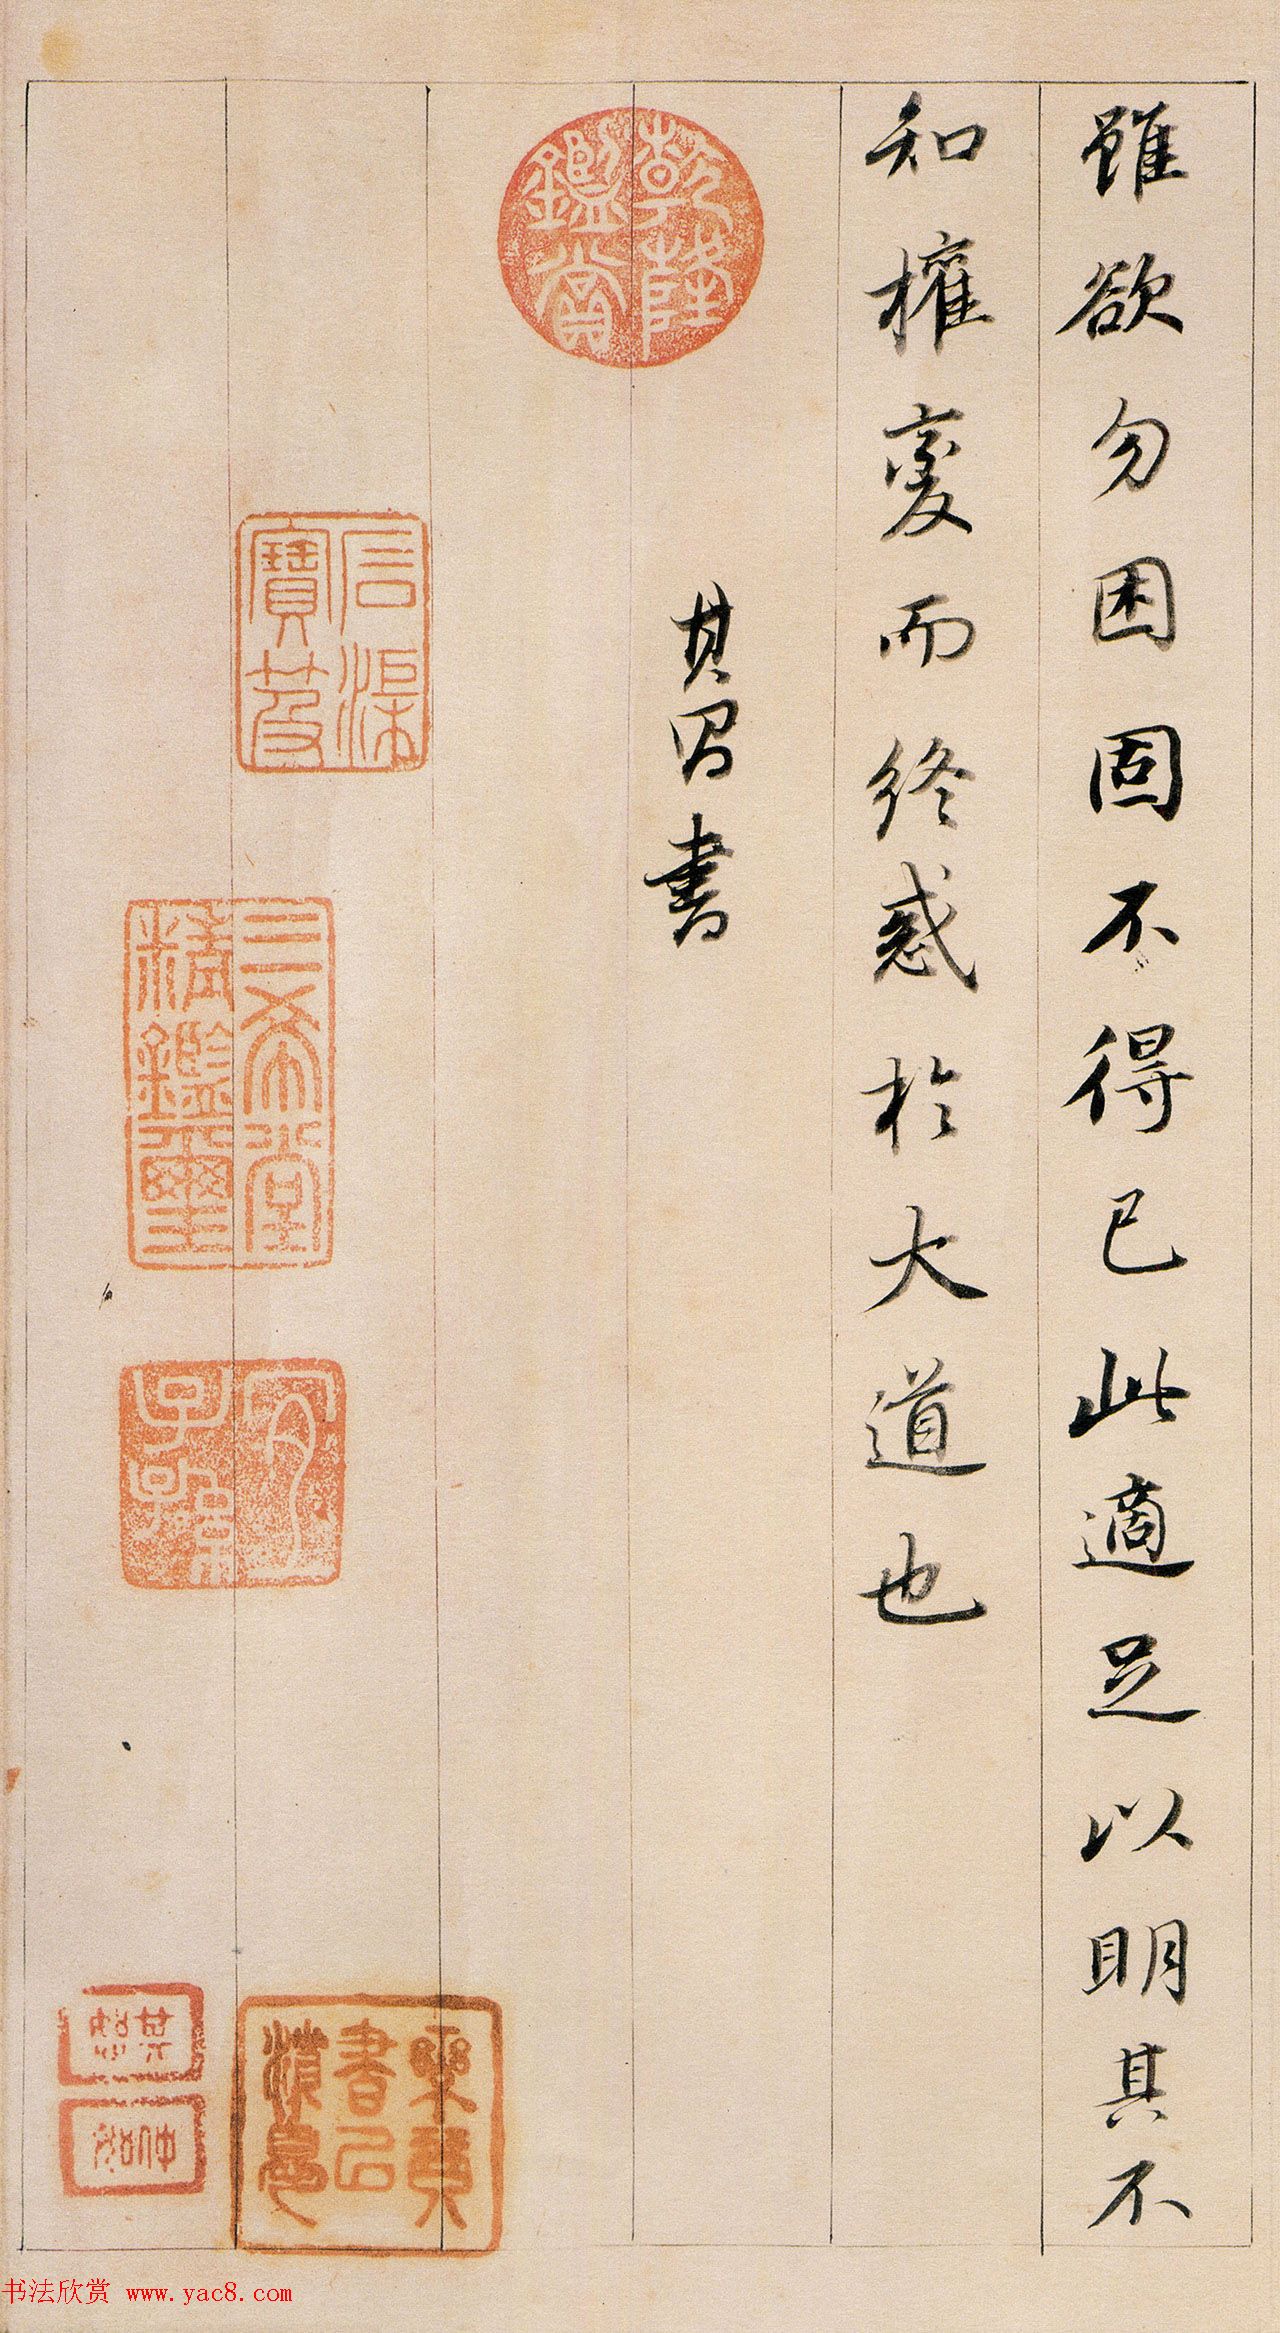 雖欲勿困固不得已此適足以明其不
知權變而終惑於大道也
其昌書
乾隆
鑑賞
三希堂
精鑑璽
宜
子孫
書法欣赏 www.yac8.com